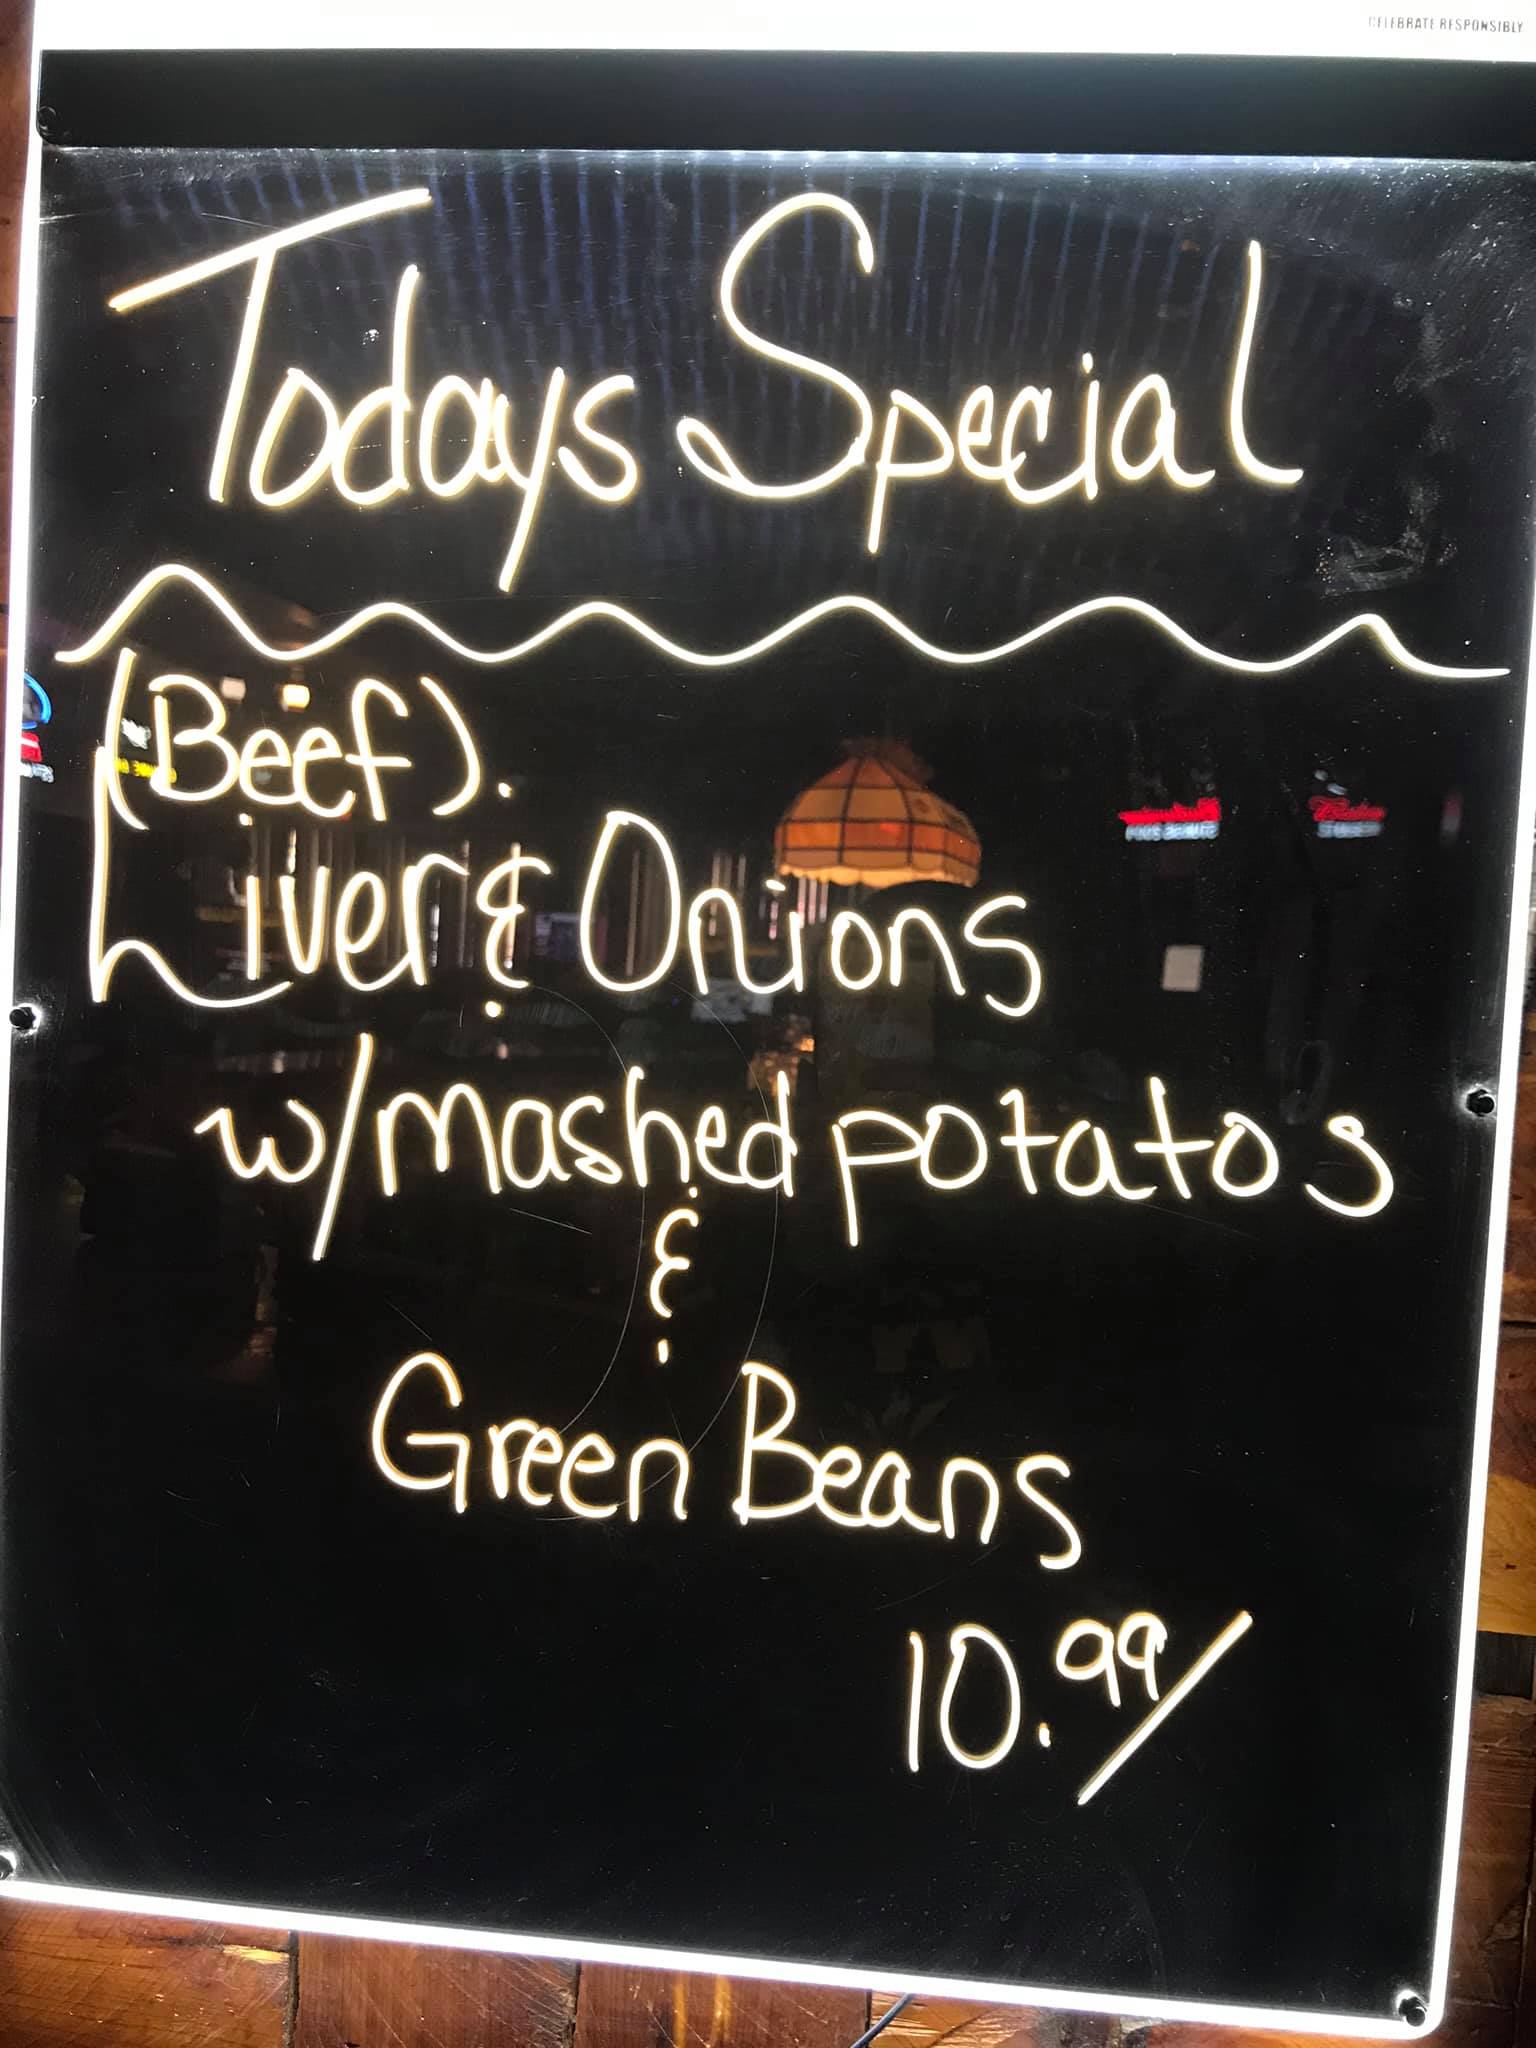 CELEBRATE RESPONSIBLY
Todays Special
(Beef).
Liver & Onions
w/mashed potatos
&
Green Beans
10.99/